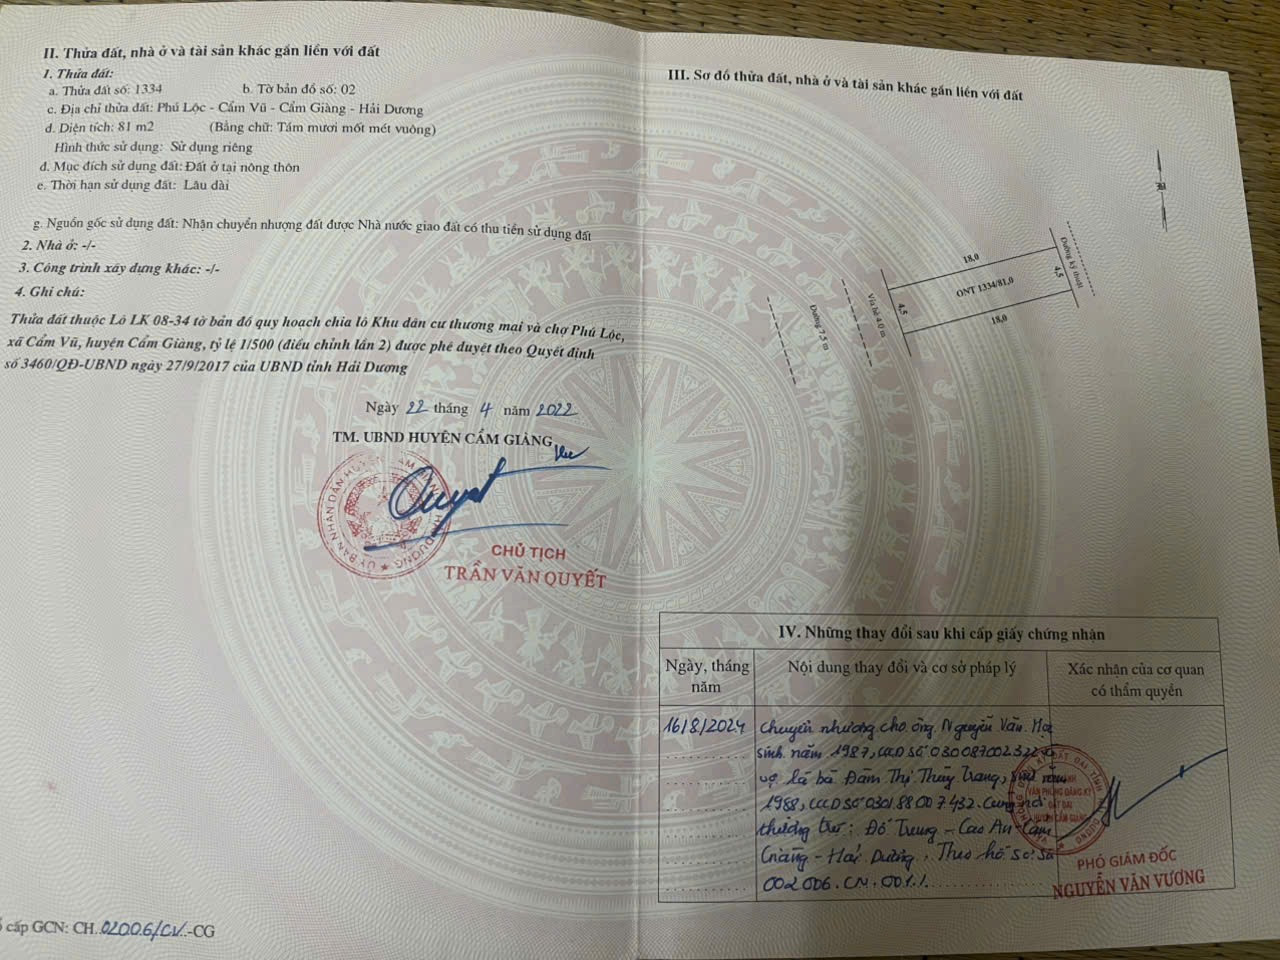 II. Thửa đất, nhà ở và tài sản khác gắn liền với đất
1. Thửa đất:
a. Thửa đất số: 1334 b. Tờ bản đồ số: 02
c. Địa chỉ thửa đất: Phú Lộc - Cẩm Vũ - Cẩm Giàng - Hải Dương
d. Diện tích: 81 m2 (Bằng chữ: Tám mươi mốt mét vuông)
Hình thức sử dụng: Sử dụng riêng
đ. Mục đích sử dụng đất: Đất ở tại nông thôn
e. Thời hạn sử dụng đất: Lâu dài
g. Nguồn gốc sử dụng đất: Nhận chuyển nhượng đất được Nhà nước giao đất có thu tiền sử dụng đất
2. Nhà ở: -/-
3. Công trình xây dựng khác: -/-
4. Ghi chú:
Thửa đất thuộc Lô LK 08-34 tờ bản đồ quy hoạch chia lô Khu dân cư thương mại và chợ Phú Lộc,
xã Cẩm Vũ, huyện Cẩm Giàng, tỷ lệ 1/500 (điều chỉnh lần 2) được phê duyệt theo Quyết định
số 3460/QĐ-UBND ngày 27/9/2017 của UBND tỉnh Hải Dương
Ngày 22 tháng 4 năm 2022
TM. UBND HUYỆN CẨM GIÀNG
Quyết
CHỦ TỊCH
TRẦN VĂN QUYẾT
cấp GCN: CH..02006/CV..-CG
III. Sơ đồ thửa đất, nhà ở và tài sản khác gắn liền với đất
18,0
ONT 1334/81,0
18,0
4,5
4,5
Đường kỹ thuật
Vỉa hè 4.0 m
Đường 7.5 m
IV. Những thay đổi sau khi cấp giấy chứng nhận
Ngày, tháng năm
Nội dung thay đổi và cơ sở pháp lý
Xác nhận của cơ quan có thẩm quyền
16/8/2024 Chuyển nhượng cho ông Nguyễn Văn
sinh năm 1987, CCCD số
vợ là bà Đàm Thị Thùy Trang, sinh năm
1988, CCCD số 030188007432. Cùng nơi
thường trú: Đỗ Trung - Cao An - Cẩm
Giàng - Hải Dương. Theo hồ sơ số
002006.CN.001./.
PHÓ GIÁM ĐỐC
NGUYỄN VĂN VƯƠNG